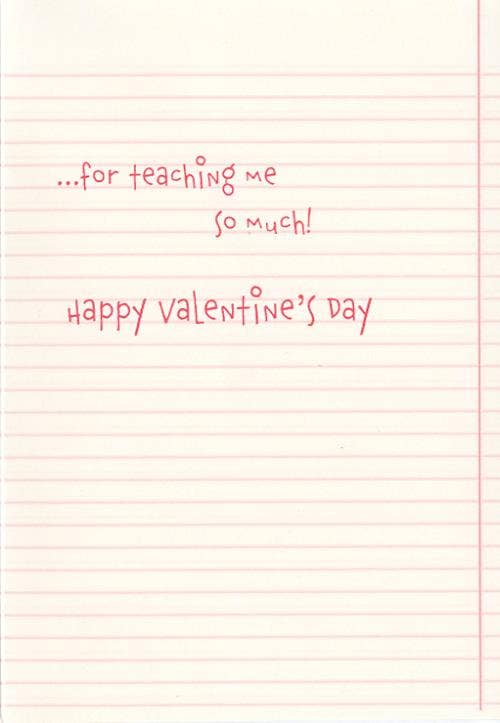 ...for teaching me
so much!
Happy Valentine's Day